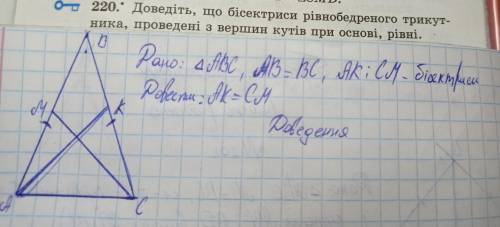 220.• Доведіть, що бісектриси рівнобедреного трикут-
ника, проведені з вершин кутів при основі, рівні.
B
Дано: △ABC, AB=BC, AK і CM - бісектриси
M K
Довести: AK=CM
Доведення
A C